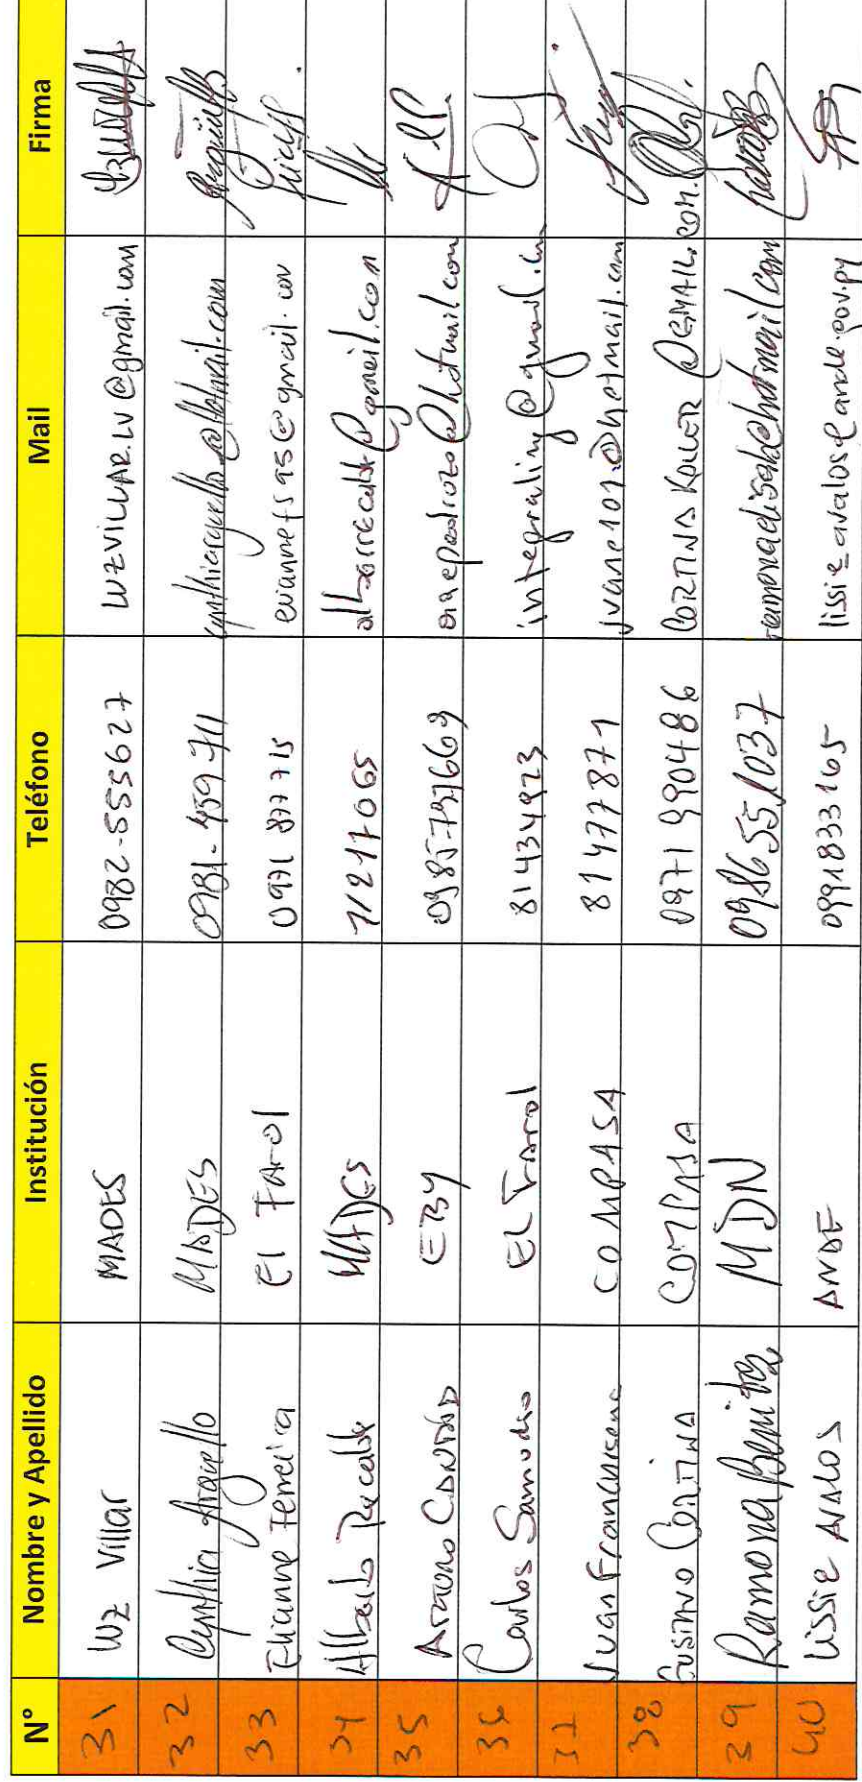 N° Nombre y Apellido Institución Teléfono Mail Firma
31 Luz Villar MADES 0982-555627 LUZVILLAR.LV@gmail.com
32 Cynthia Arguello MADES 0981-459711 cynthiarguello@hotmail.com
33 Evianne Ferreira El Farol 0971 877715 eviannefs95@gmail.com
34 Alberto Recalde MADES 71217065
35 Arturo EBY
36 Carlos Samudio El Farol 81434923 integraling@gmail.com
37 Juan COMPASA 81477871 juane101@hotmail.com
38 Gustavo Cortina COMPASA 0971 990486 CORTINA KOLLER @GMAIL.COM.
39 Ramona Benitez MDN 0986551037
40 Lissie Avalos ANDE 0991833165 lissie_avalos@ande.gov.py